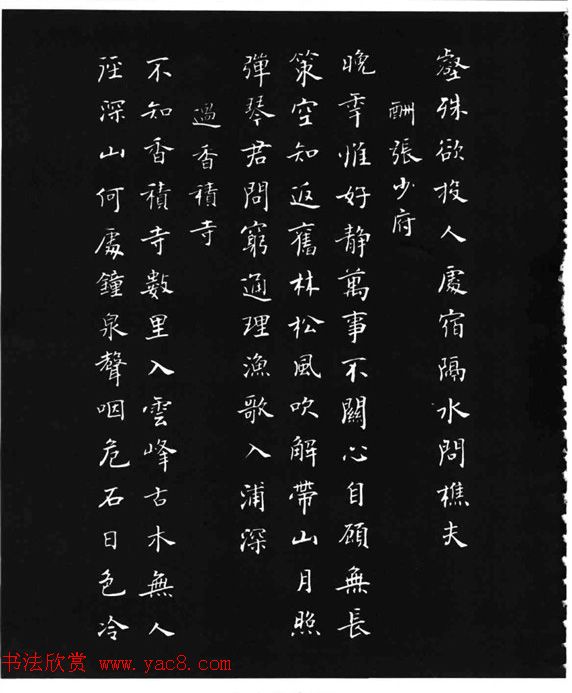 壑殊欲投人處宿隔水問樵夫
酬張少府
晚年惟好静萬事不關心自顧無長
策空知返舊林松風吹解帶山月照
彈琴君問窮通理漁歌入浦深
過香積寺
不知香積寺數里入雲峰古木無人
徑深山何處鐘泉聲咽危石日色冷
书法欣赏 www.yac8.com